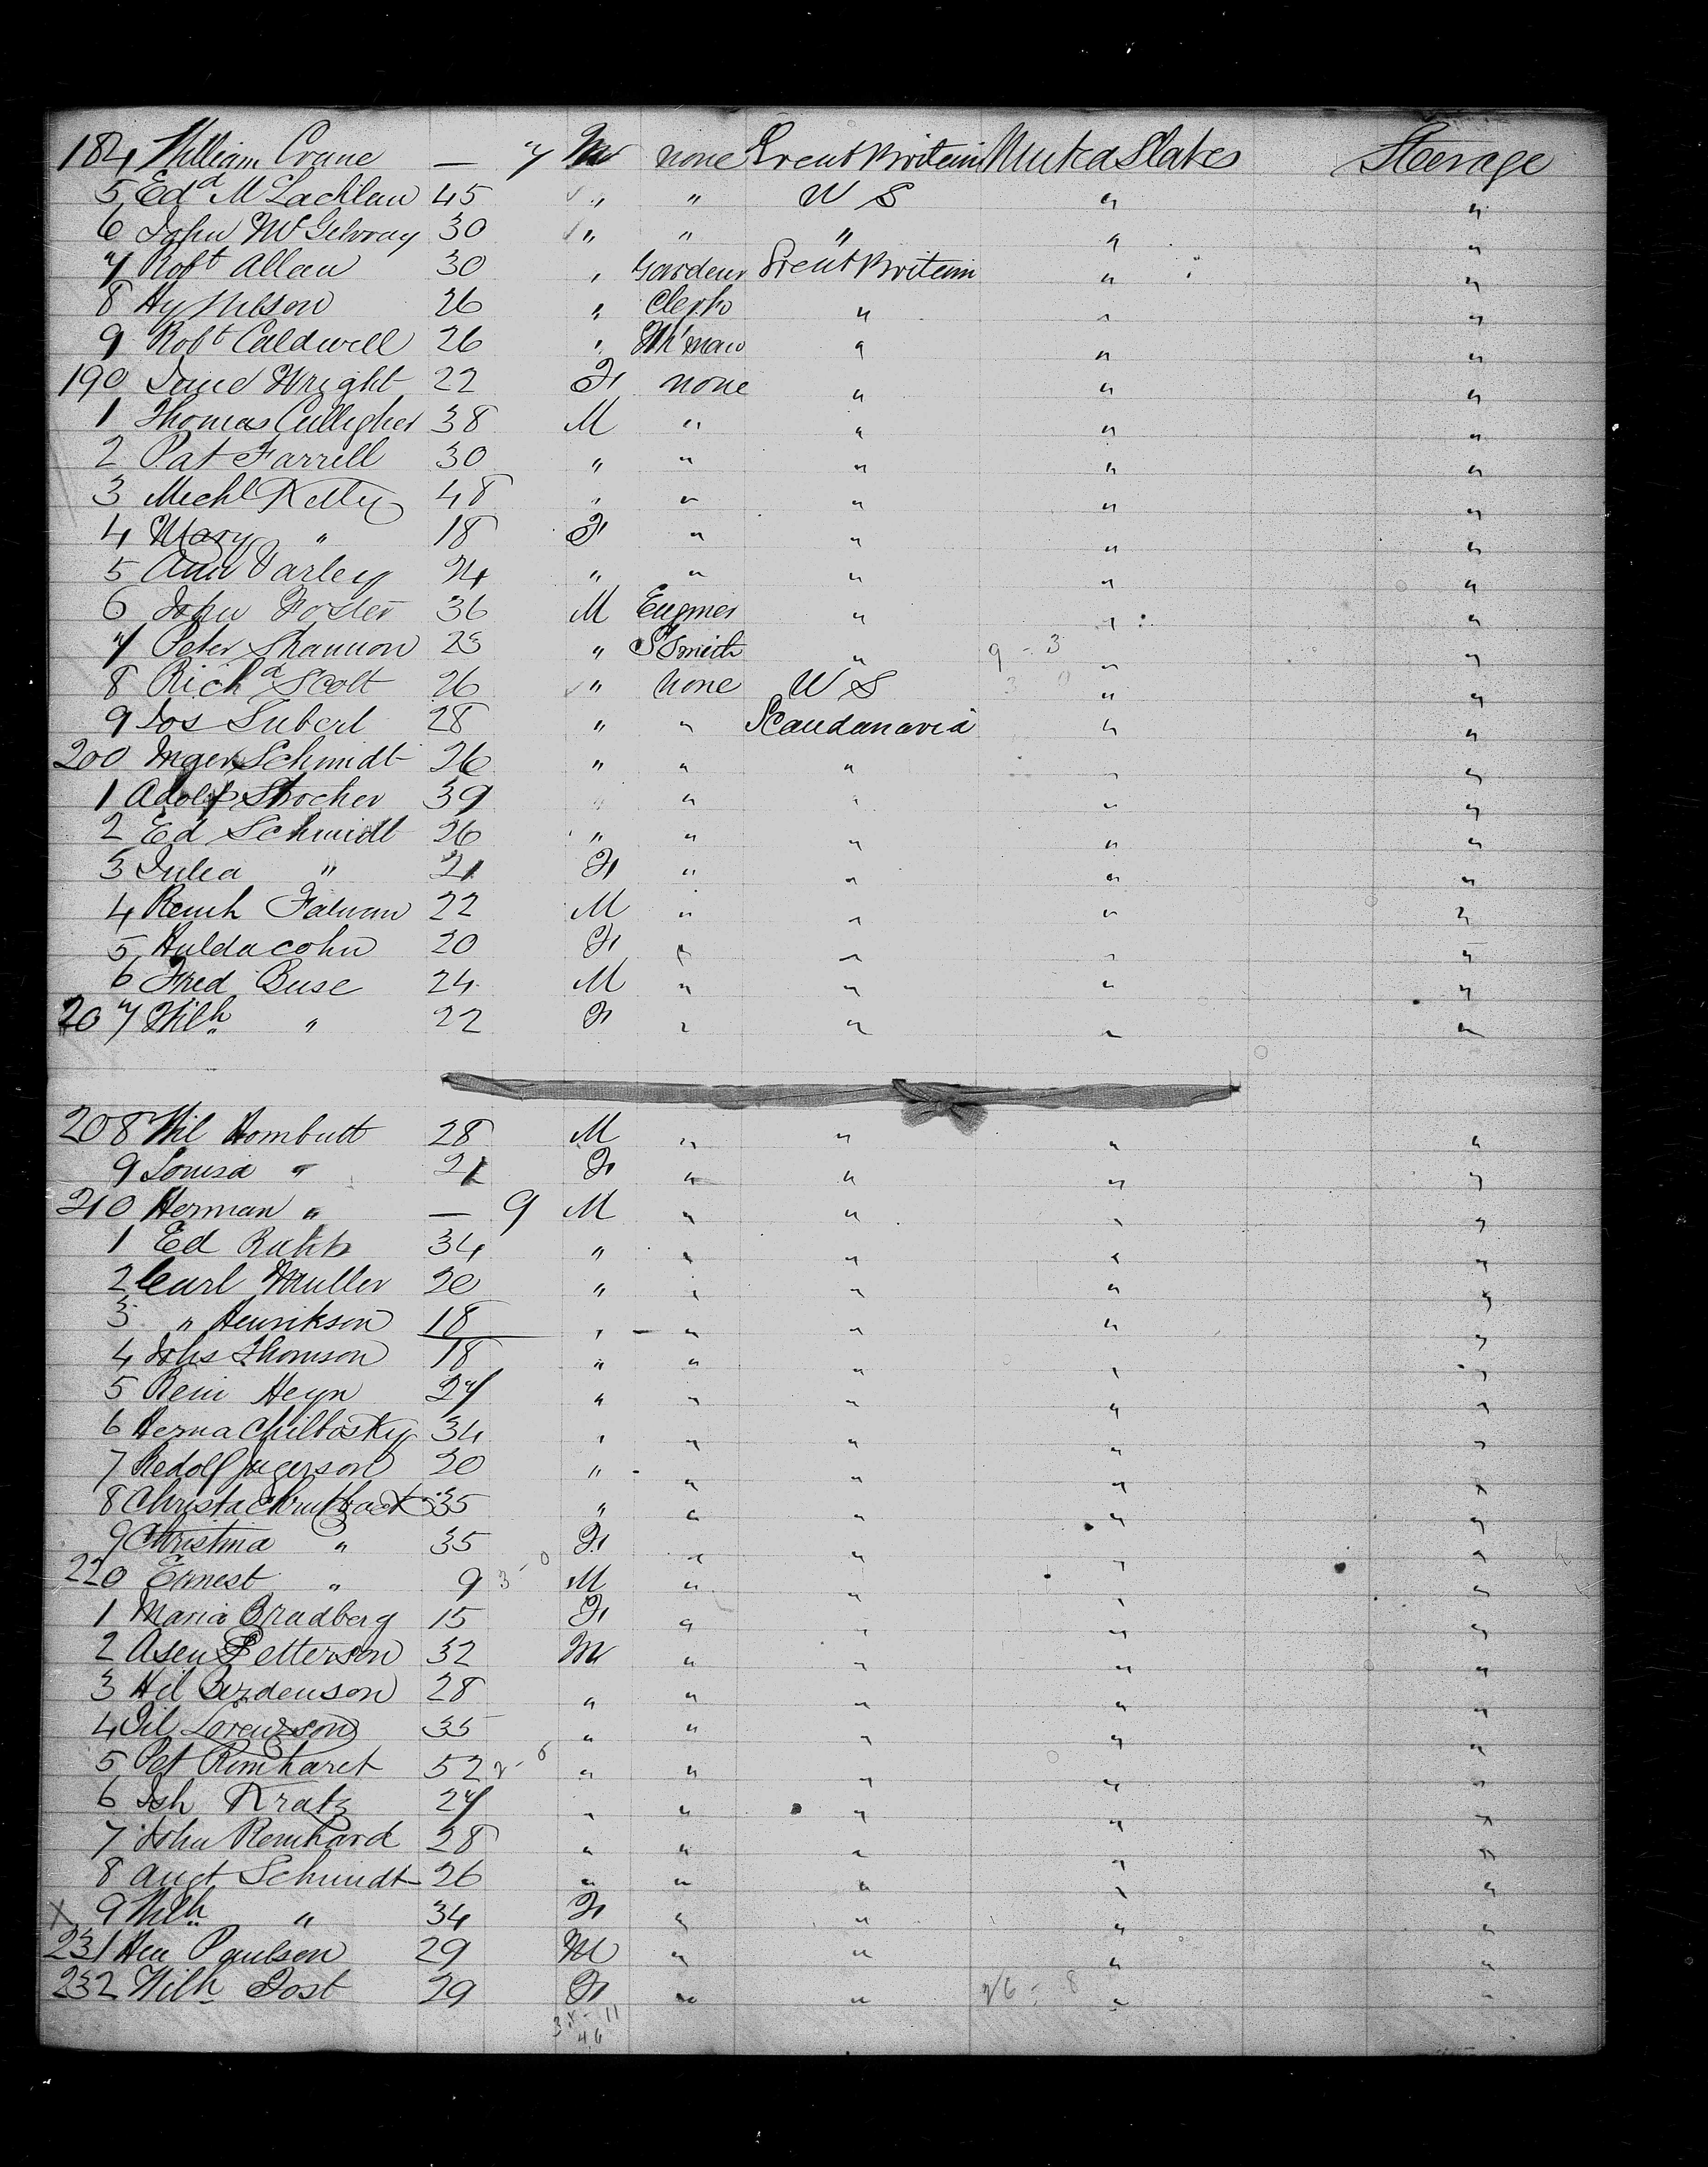 184 William Crane — 7 M none Great Britain United States Steerage
5 Edd McLachlan 45 ✓ " " U S " "
6 John McGilvray 30 ✓ " " " " "
7 Robt Allan 30 " Gardenr Great Britain " "
8 Hy Nilson 26 " Clerk " " "
9 Robt Caldwell 26 " " " "
190 Jane Wright 22 F none " " "
1 Thomas Culligher 38 M " " " "
2 Pat Farrell 30 " " " " "
3 Michl Kelly 48 " " " " "
4 Mary " 18 F " " " "
5 Ann Varley 24 " " " " "
6 John Foster 36 M Enginer " " "
7 Peter Shannon 23 " S Smith " 9 - 3 " "
8 Richd Scott 26 ✓ " none U S " "
9 Jos Lubert 28 " " Scandanavia " "
200 Inger Schmidt 26 " " " " "
1 Adolf Strocher 39 " " " " "
2 Ed Schmidt 26 " " " " "
3 Julia " 21 F " " " "
4 Reinh 22 M " " " "
5 Hulda Cohn 20 F " " " "
6 Fred Buse 24 M " " " "
207 Wilh " 22 F " " " "
208 Wil Hornbutt 28 M " " " "
9 Louisa " 21 F " " " "
210 Herman " — 9 M " " " "
1 Ed 34 " " " " "
2 Carl Muller 20 " " " " "
3 " Henrikson 18 " " " " "
4 Johs Thomson 18 " " " " "
5 Rein Heyn 27 " " " " "
6 Herma Chilbosky 34 " " " " "
7 Redolf Jugerson 20 " " " " "
8 35 " " " " "
9 Christina " 35 F " " " "
220 Ernest " 9 M " " " "
1 Maria Bradberg 15 F " " " "
2 Asen Petterson 32 M " " " "
3 Hil 28 " " " " "
4 Jil Lorenzson 35 " " " " "
5 Pet Rimharet 52 " " " " "
6 Joh Kratz 27 " " " " "
7 John Reinhard 28 " " " " "
8 Augt Schmidt 26 " " " " "
X 9 Wilh " 34 F " " " "
231 Hen Paulsen 29 M " " " "
232 Wilh Jost 29 F " " 26 - 8 " "
46